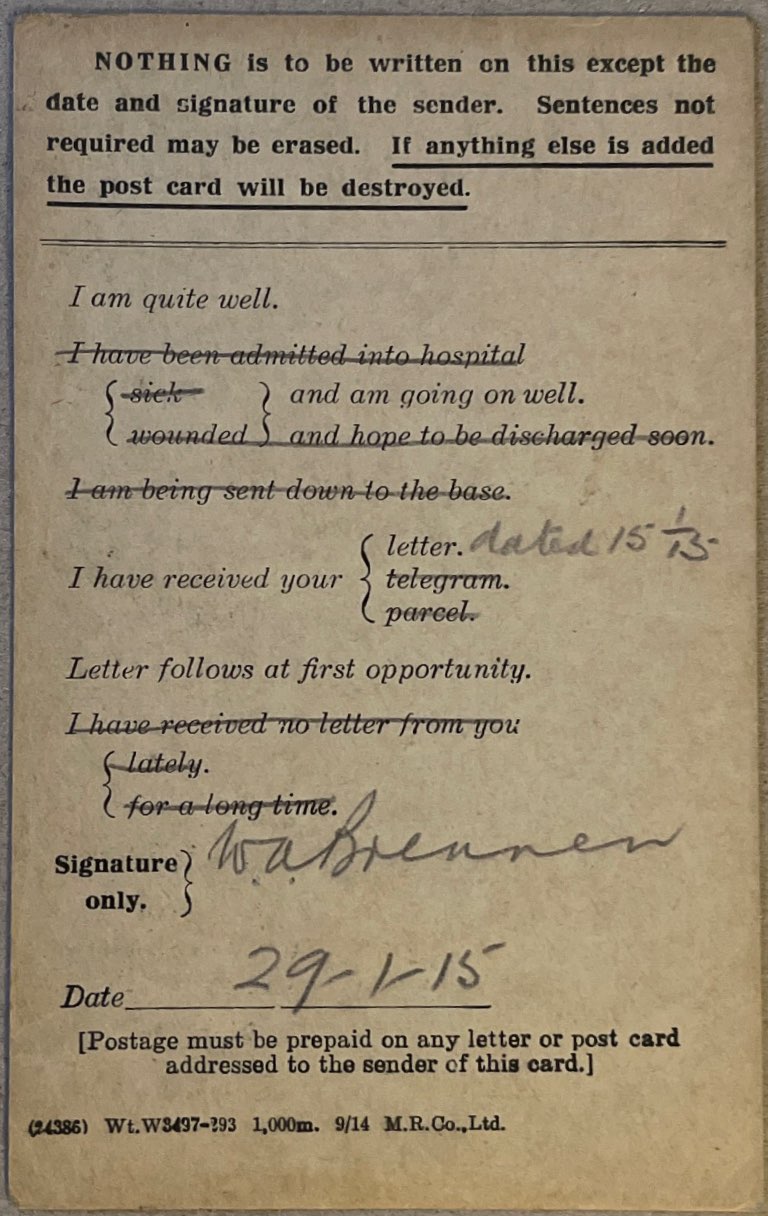 NOTHING is to be written on this except the
date and signature of the sender. Sentences not
required may be erased. If anything else is added
the post card will be destroyed.
I am quite well.
I have been admitted into hospital
sick and am going on well.
wounded and hope to be discharged soon.
I am being sent down to the base.
letter. dated 15 1/15
I have received your telegram.
parcel.
Letter follows at first opportunity.
I have received no letter from you
lately.
for a long time.
Signature only. W. A. Brennen
Date 29-1-15
[Postage must be prepaid on any letter or post card
addressed to the sender of this card.]
(24386) Wt.W3497-293 1,000m. 9/14 M.R.Co.,Ltd.